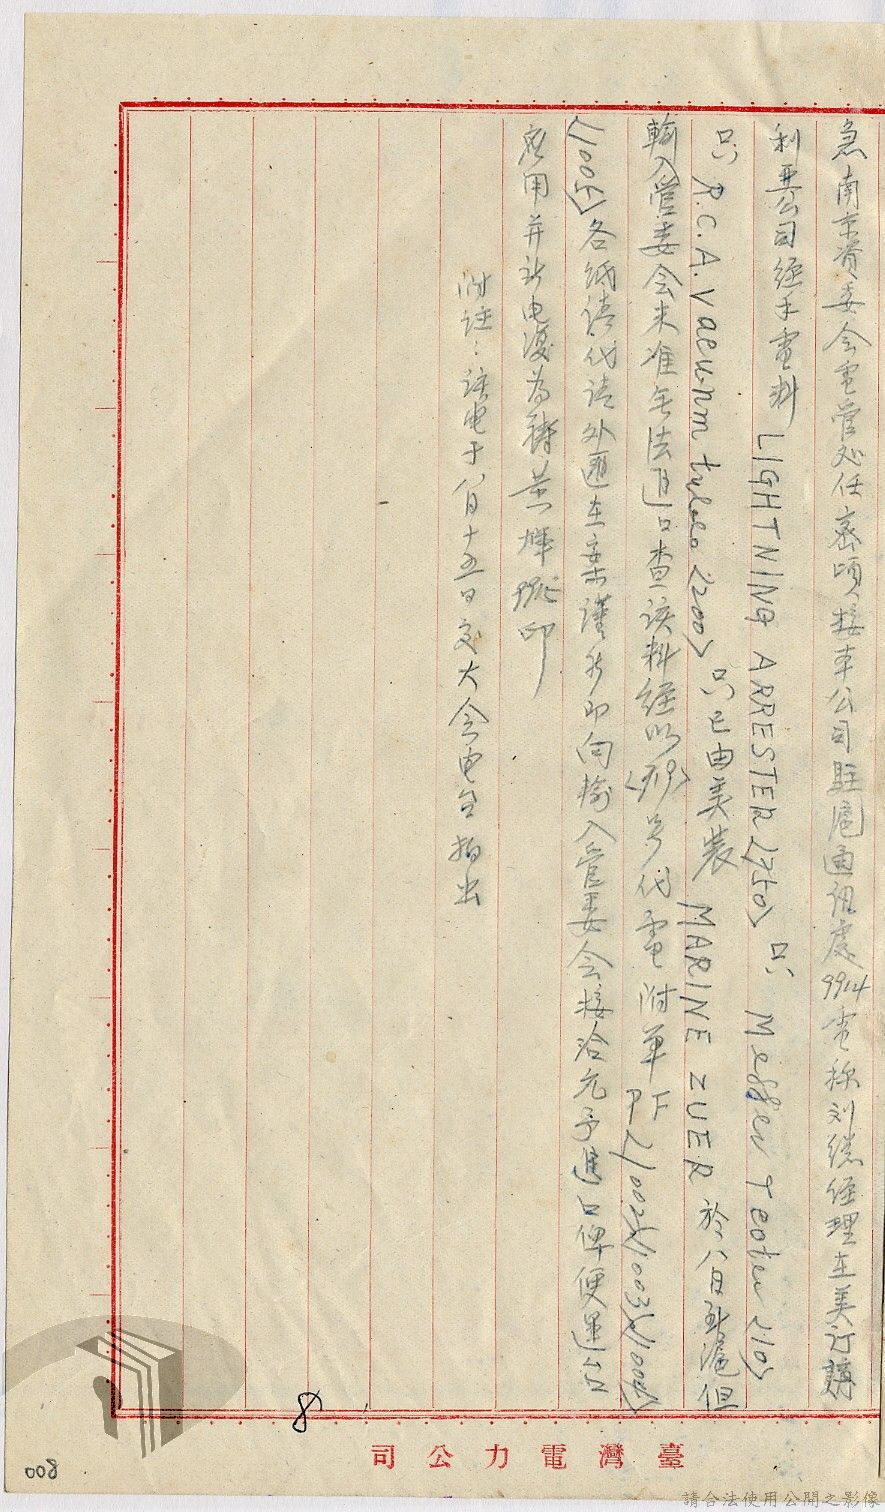 急南京資委会電管处任 密頃接本公司駐滬通訊處9914電称刘總經理在美订購
利亞公司經手電料 LIGHTNING ARRESTER〈750〉只 Megger Tester〈10〉
只 R.C.A. Vacuum tubes〈200〉只已由美裝 MARINE ZUER 於八月到滬但
輸入管委会未准無法進口查該料經以 号代電附單 PF〈1002〉〈1003〉〈1004〉
〈1005〉各紙請代請外匯在案謹祈即向輸入管委会接洽允予進口俾便運台
應用并祈电復為禱 黄煇 印
附註：該电于八月十五日交大会电台拍出
8
臺灣電力公司
008
請合法使用公開之影像